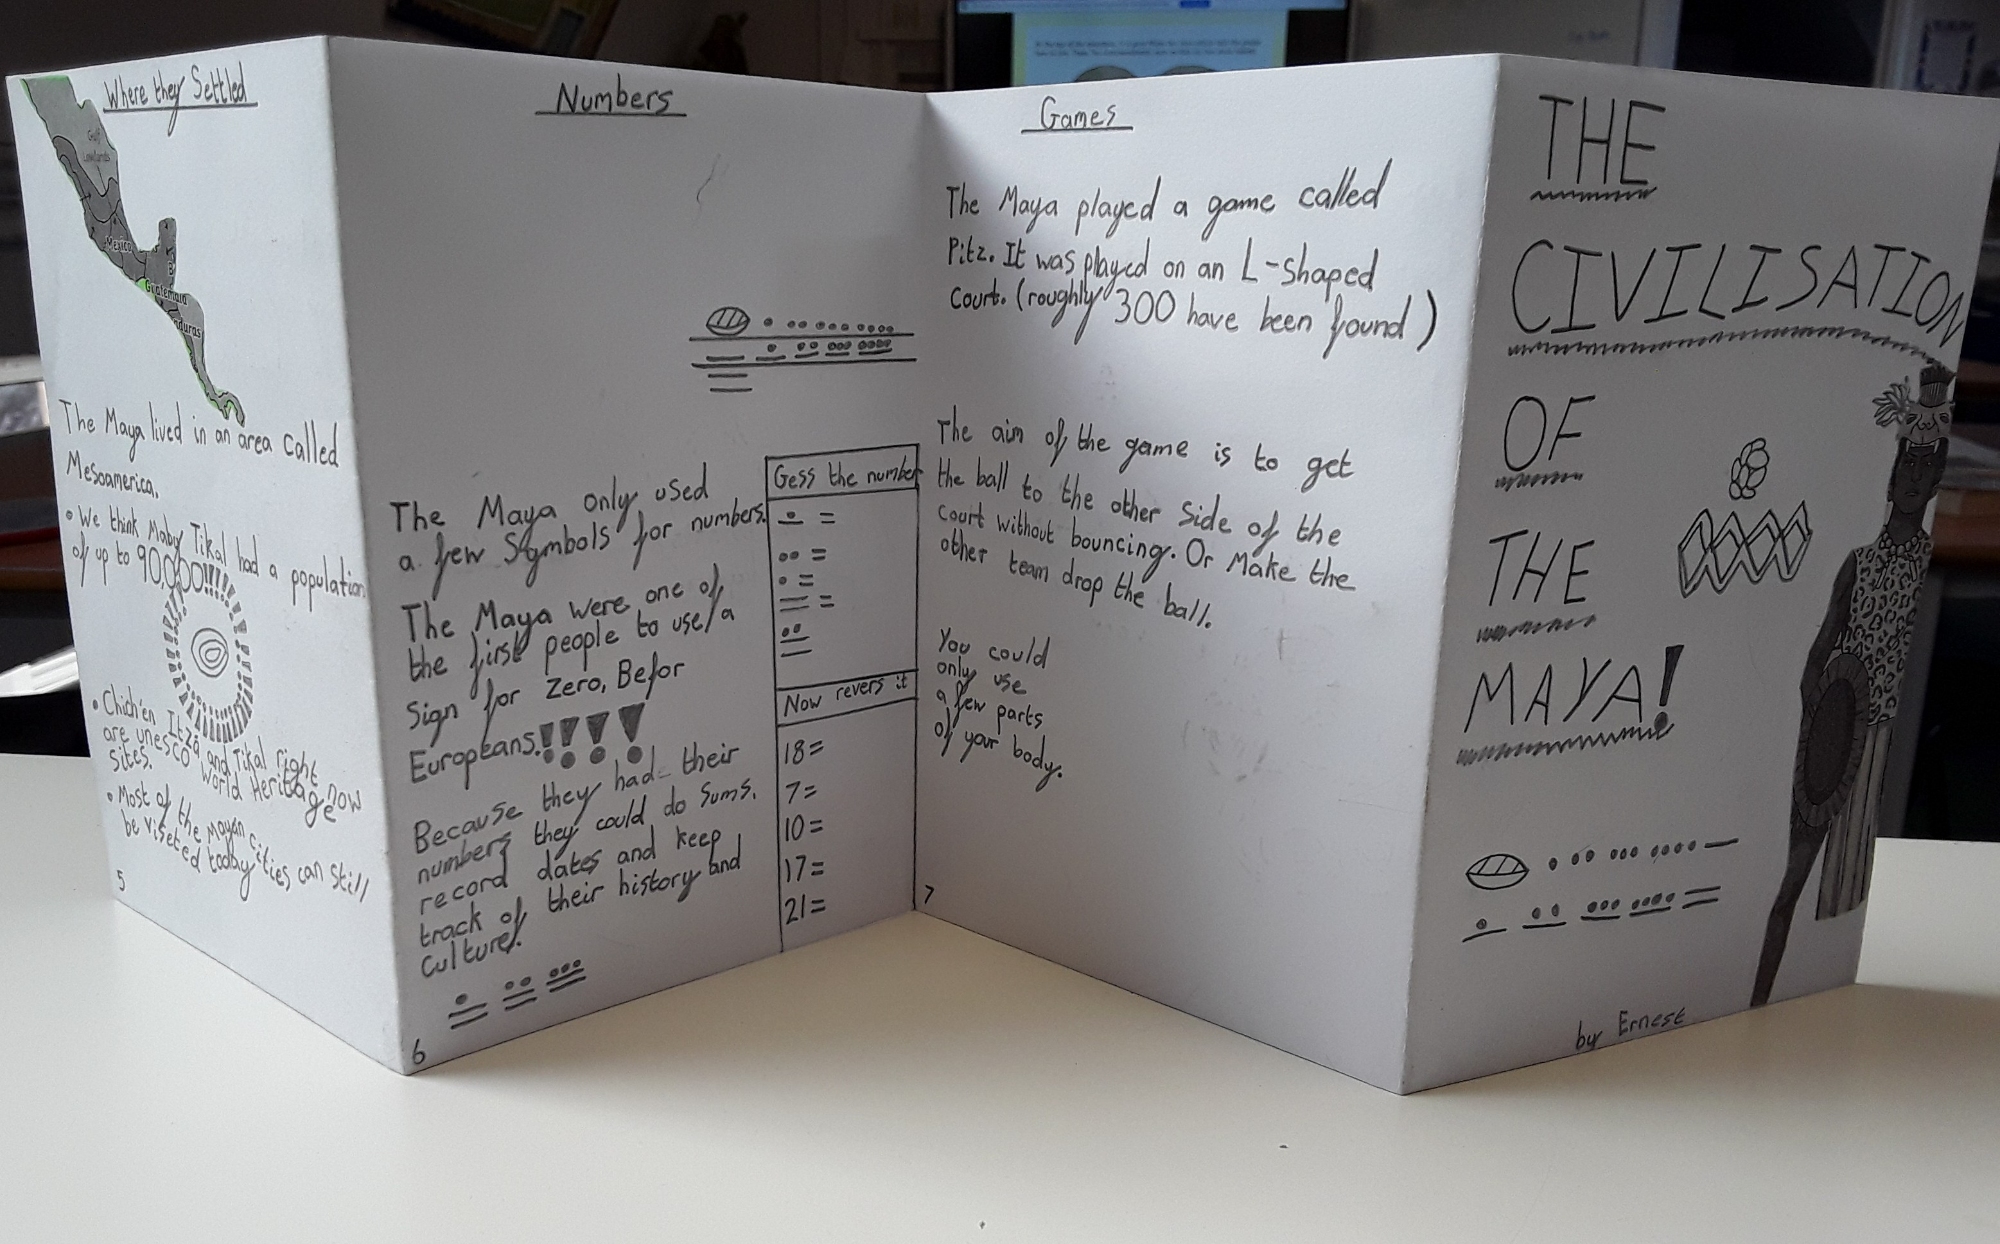 Where they Settled
Gulf
Lowlands
Mexico
Guatemala
nduras
The Maya lived in an area called
Mesoamerica.
• We think Maby Tikal had a population
of up to 90,000!!!!
• Chich'en Itza and Tikal right now
are unesco World Heritage
Sites.
• Most of the mayan cities can still
be viseted today
5
Numbers
The Maya only used
a few Symbols for numbers.
The Maya were one of
the first people to use a
Sign for Zero, Befor
Europeans.!!!!
Because they had their
numbers they could do sums,
record dates and keep
track of their history and
culture.
6
Gess the number
=
=
=
=
Now revers it
18=
7=
10=
17=
21=
Games
The Maya played a game called
Pitz. It was played on an L-shaped
Court. (roughly 300 have been found)
The aim of the game is to get
the ball to the other side of the
court without bouncing. Or Make the
other team drop the ball.
You could
only use
a few parts
of your body.
7
THE
CIVILISATION
OF
THE
MAYA!
by Ernest